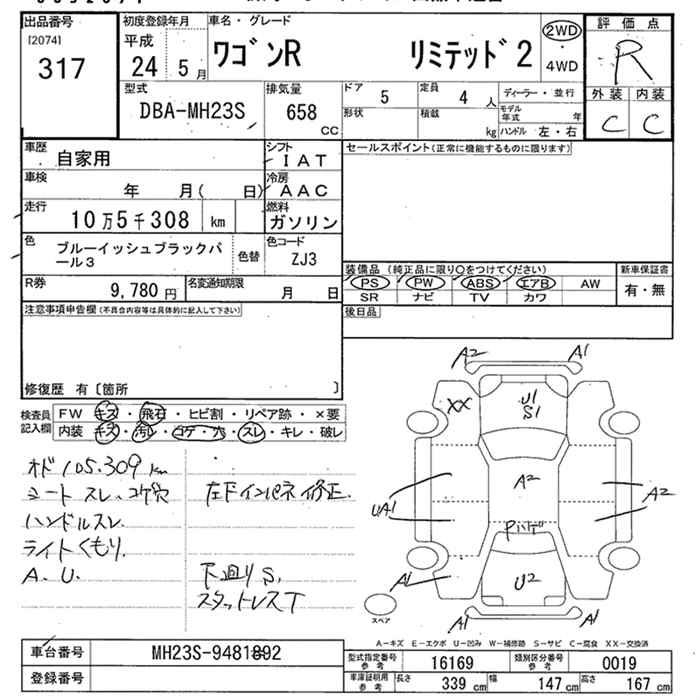 出品番号
[2074]
317
初度登録年月
平成
24 5 月
車名・グレード
ワゴンR リミテッド2
2WD
・
4WD
評価点
R
外装 内装
C C
型式
DBA-MH23S
排気量
658
cc
ドア
5
定員
4 人
形状
積載
kg
ディーラー・並行
モデル年式 年
ハンドル 左・右
車歴
自家用
シフト
IAT
セールスポイント(正常に機能するものに限ります)
車検
年 月( 日)
冷房
AAC
走行
10万5千308 km
燃料
ガソリン
色
ブルーイッシュブラックパ
ール3
色替
色コード
ZJ3
R券
9,780 円
名変通知期限
月 日
装備品(純正品に限り○をつけてください)
PS PW ABS エアB AW
SR ナビ TV カワ
新車保証書
有・無
後日品
注意事項申告欄(不具合内容等は具体的に記入して下さい)
修復歴 有〔箇所 〕
検査員
記入欄
FW キズ・飛石・ヒビ割・リペア跡・×要
内装 キズ・汚レ・コゲ・穴・スレ・キレ・破レ
オド105.309km
シート スレ、コゲ穴
ハンドルスレ
ライトくもり.
A.U.
左下インパネ修正.
下廻りS.
スタットレスT
A2 A1
XX
U1
S1
A2
UA1
A2
Pハゲ
A1
U2
A1 A1
スペア
A-キズ E-エクボ U-凹み W-補修跡 S-サビ C-腐食 XX-交換済
車台番号
MH23S-9481892
登録番号
型式指定番号
参考
16169
類別区分番号
参考
0019
車庫証明用
参考
長さ 339 cm 幅 147 cm 高さ 167 cm